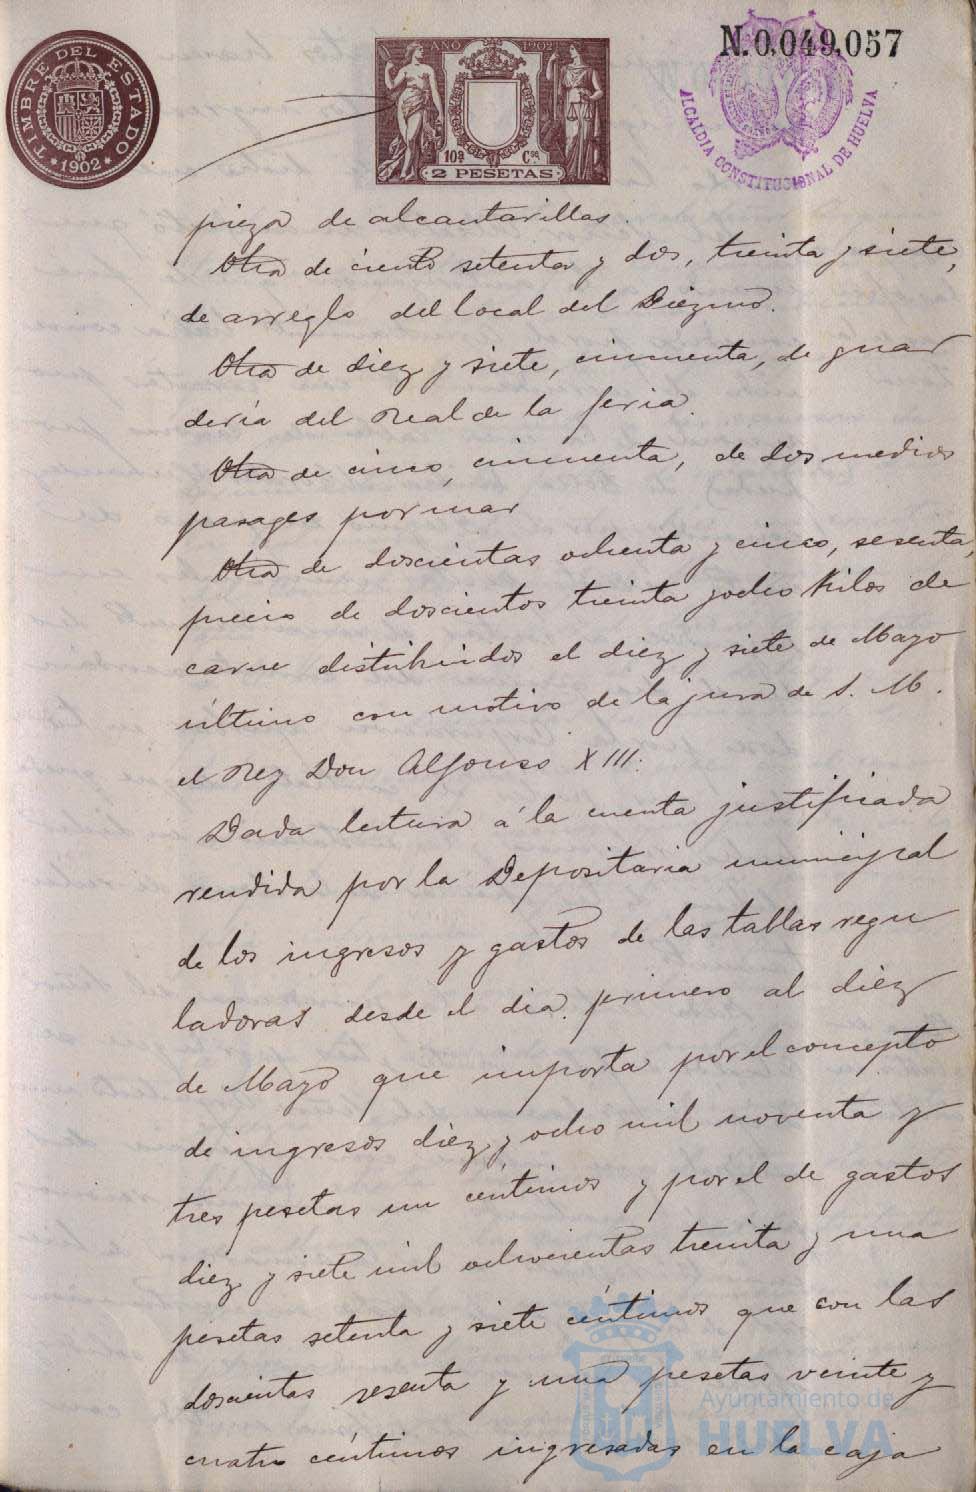 TIMBRE DEL ESTADO
* 1902 *
AÑO 1902
10ª Cse
2 PESETAS
N.0,049,057
ALCALDIA CONSTITUCIONAL DE HUELVA
pieza de alcantarillas.
Otra de ciento setenta y dos, treinta y siete,
de arreglo del local del Diezmo.
Otra de diez y siete, cincuenta, de guar
dería del Real de la feria.
Otra de cinco, cincuenta, de dos medios
pasages por mar
Otra de doscientas ochenta y cinco, sesenta,
precio de doscientos treinta y ocho kilos de
carne distribuidos el diez y siete de Mayo
último con motivo de la jura de S. M.
el Rey Don Alfonso XIII.
Dada lectura á la cuenta justificada
rendida por la Depositaria municipal
de los ingresos y gastos de las tablas regu
ladoras desde el dia primero al diez
de Mayo que importa por el concepto
de ingresos diez y ocho mil noventa y
tres pesetas un céntimos y por el de gastos
diez y siete mil ochocientas treinta y una
pesetas setenta y siete céntimos que con las
doscientas sesenta y una pesetas veinte y
cuatro céntimos ingresadas en la caja
Ayuntamiento de
HUELVA